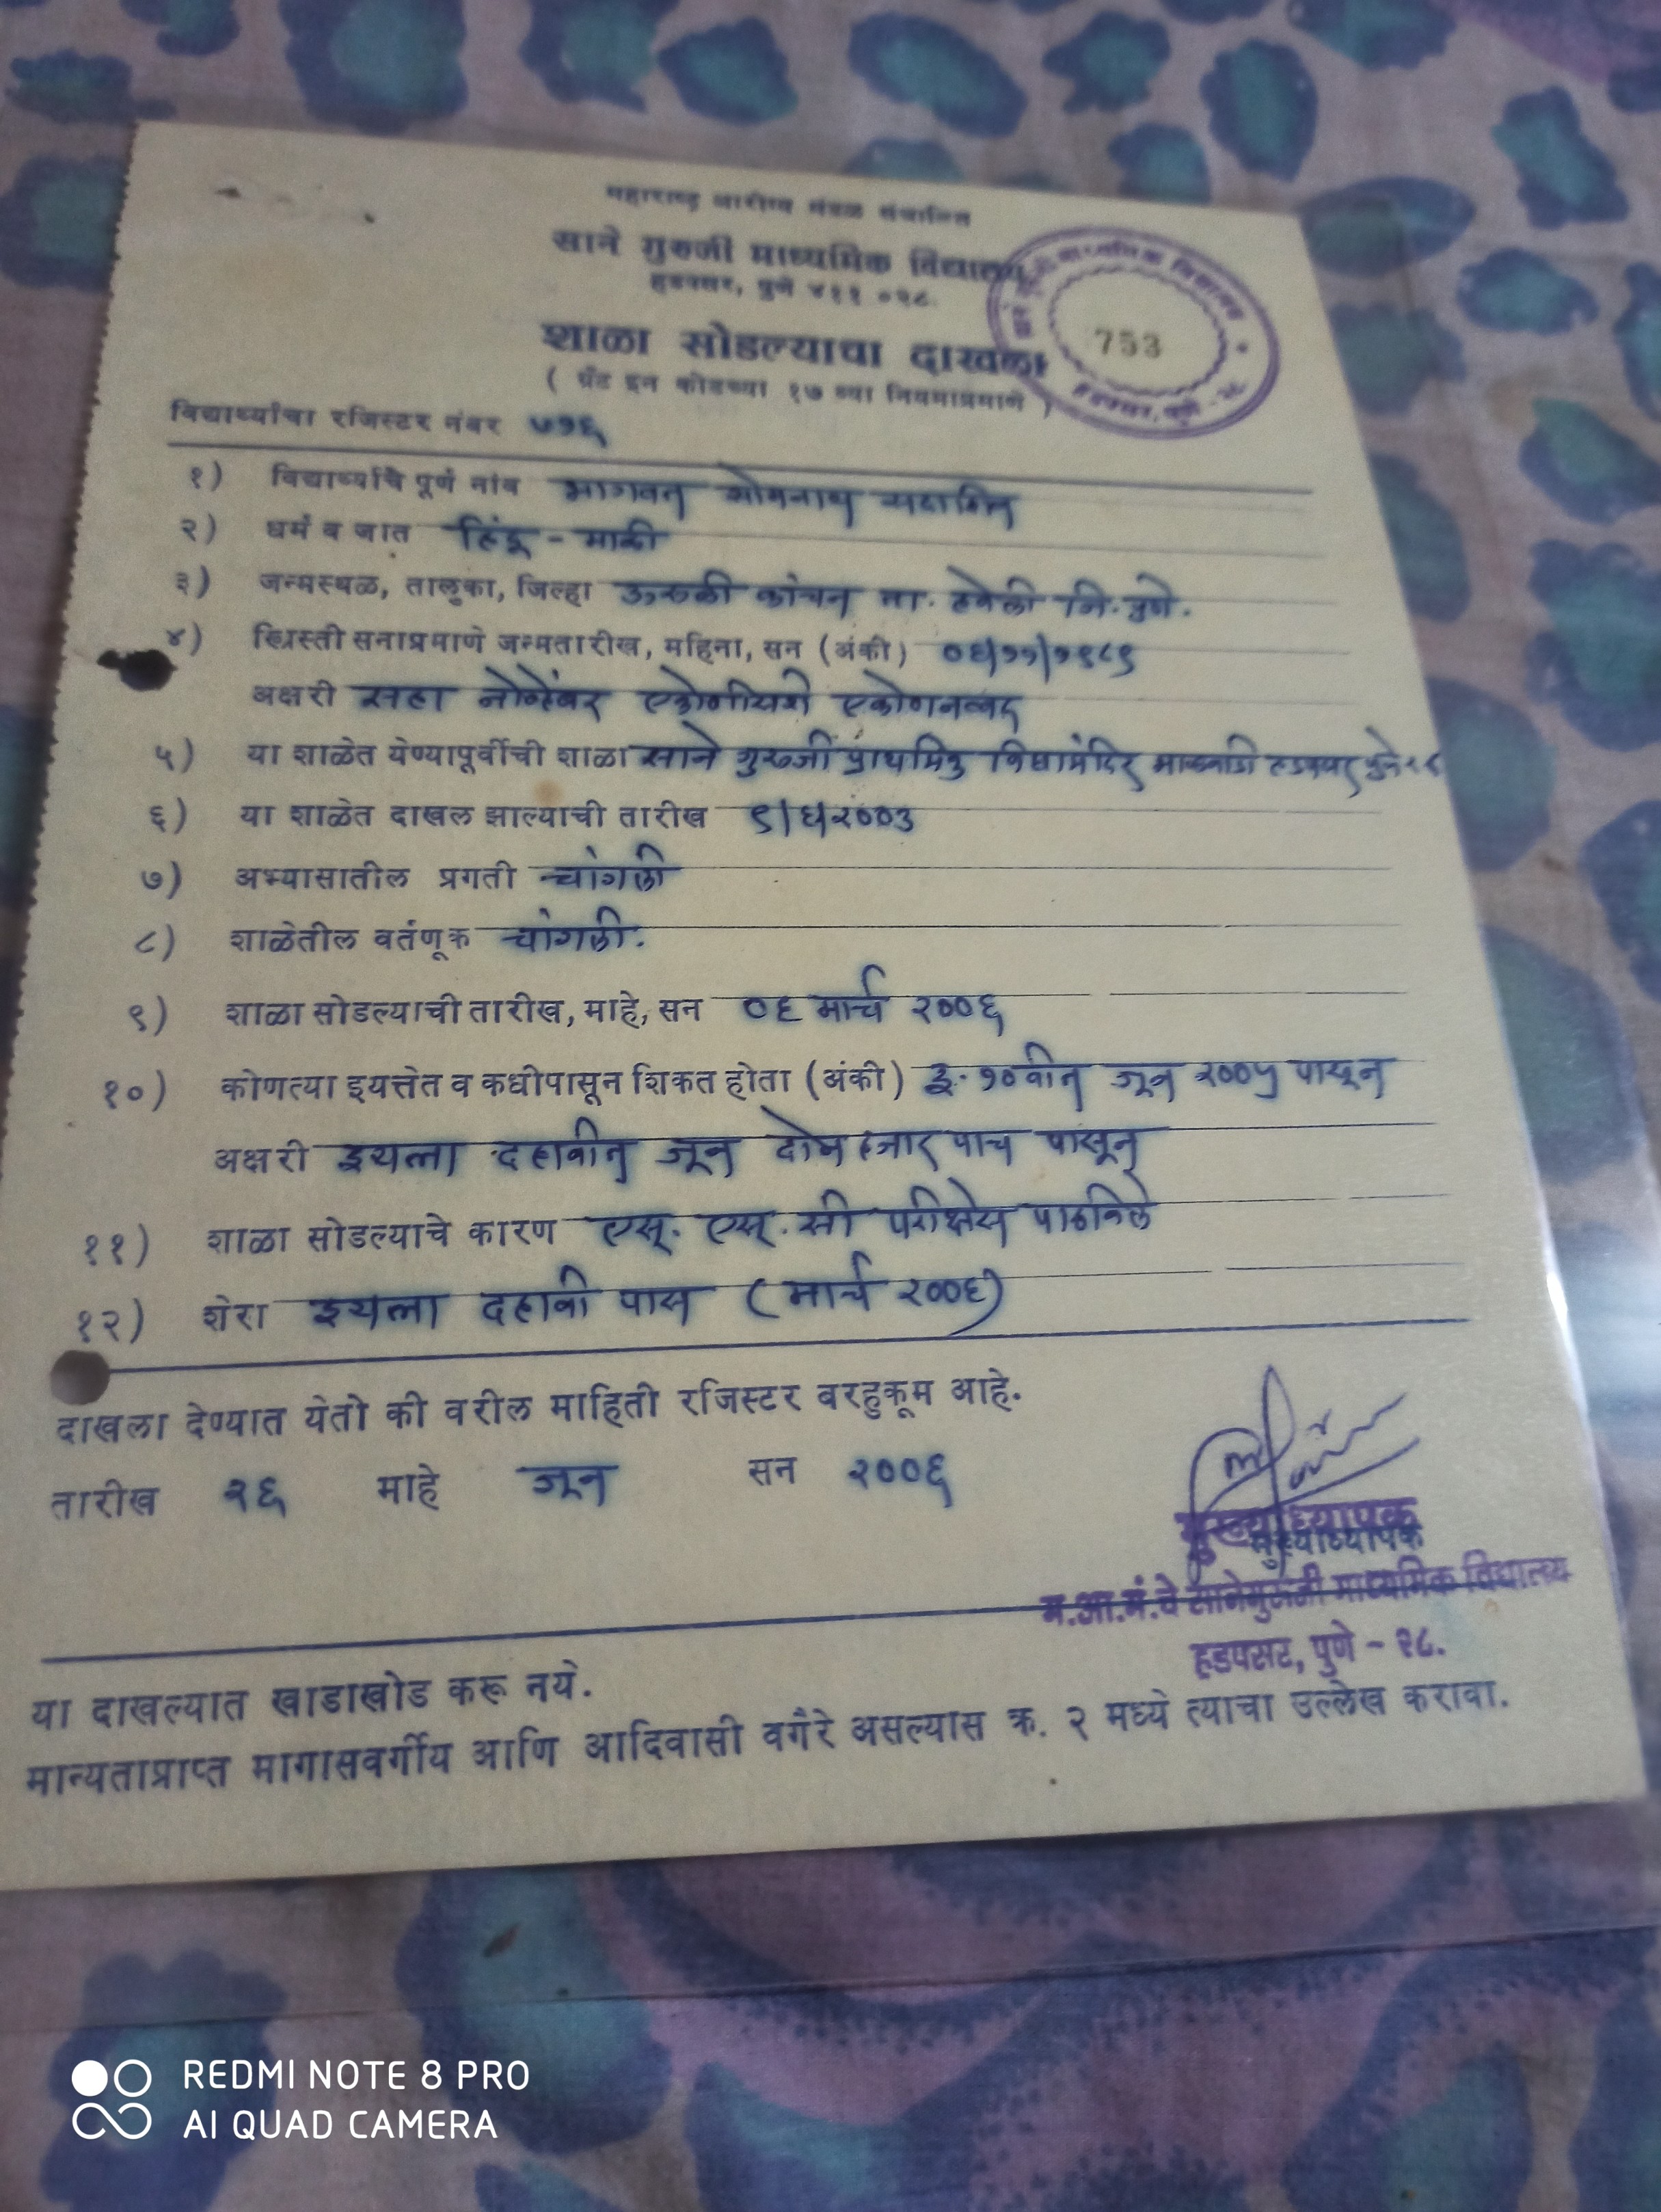 महाराष्ट्र आरोग्य मंडळ संचालित
साने गुरुजी माध्यमिक विद्यालय
हडपसर, पुणे ४११ ०२८.
753
शाळा सोडल्याचा दाखला
( ग्रँट इन कोडच्या १७ व्या नियमाप्रमाणे )
विद्यार्थ्याचा रजिस्टर नंबर ७१६
१) विद्यार्थ्याचे पूर्ण नांव भागवत सोमनाथ सदाशिव
२) धर्म व जात हिंदू - माळी
३) जन्मस्थळ, तालुका, जिल्हा ऊरुळी कांचन ता. हवेली जि. पुणे.
४) ख्रिस्ती सनाप्रमाणे जन्मतारीख, महिना, सन (अंकी) ०६/११/१९८९
अक्षरी सहा नोव्हेंबर एकोणीसशे एकोणनव्वद
५) या शाळेत येण्यापूर्वीची शाळा साने गुरुजी प्राथमिक विद्यामंदिर माळवाडी हडपसर पुणे २८
६) या शाळेत दाखल झाल्याची तारीख ९/६/२००३
७) अभ्यासातील प्रगती चांगली
८) शाळेतील वर्तणूक चांगली.
९) शाळा सोडल्याची तारीख, माहे, सन ०६ मार्च २००६
१०) कोणत्या इयत्तेत व कधीपासून शिकत होता (अंकी) इ. १०वीत जून २००५ पासून
अक्षरी इयत्ता दहावीत जून दोन हजार पाच पासून
११) शाळा सोडल्याचे कारण एस्. एस्. सी परीक्षेस पाठविले
१२) शेरा इयत्ता दहावी पास (मार्च २००६)
दाखला देण्यात येतो की वरील माहिती रजिस्टर बरहुकूम आहे.
तारीख २६ माहे जून सन २००६
मुख्याध्यापक
मुख्याध्यापक
म.आ.मं.चे सानेगुरुजी माध्यमिक विद्यालय
हडपसर, पुणे - २८.
या दाखल्यात खाडाखोड करू नये.
मान्यताप्राप्त मागासवर्गीय आणि आदिवासी वगैरे असल्यास क्र. २ मध्ये त्याचा उल्लेख करावा.
REDMI NOTE 8 PRO
AI QUAD CAMERA